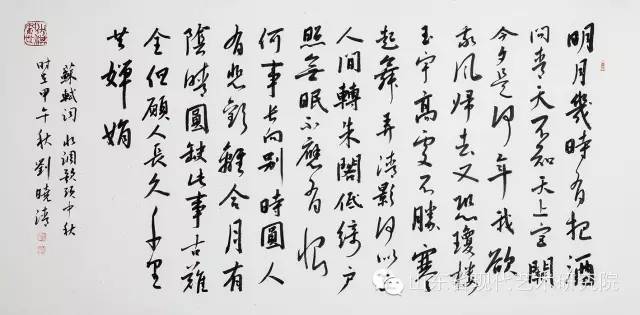 明月幾時有把酒
問青天不知天上宮闕
今夕是何年我欲
乘风歸去又恐瓊樓
玉宇高處不勝寒
起舞弄清影何似在
人間轉朱閣低綺户
照無眠不應有恨
何事長向别時圓人
有悲歡離合月有
陰晴圓缺此事古難
全但願人長久千里
共嬋娟
蘇軾词 水调歌頭中秋
时在甲午秋劉曉清
山东省现代艺术研究院